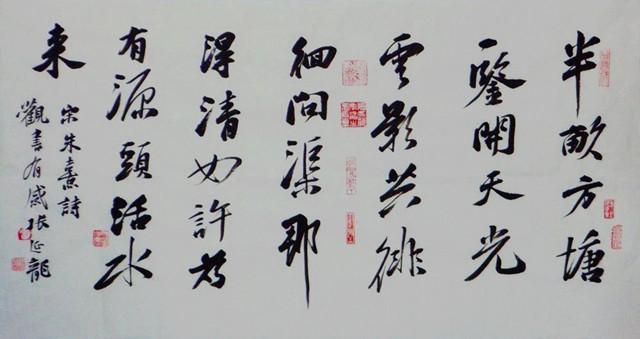 半畝方塘
一鑒開天光
雲影共徘
徊問渠那
得清如許為
有源頭活水
來
宋朱熹詩
觀書有感張延龍